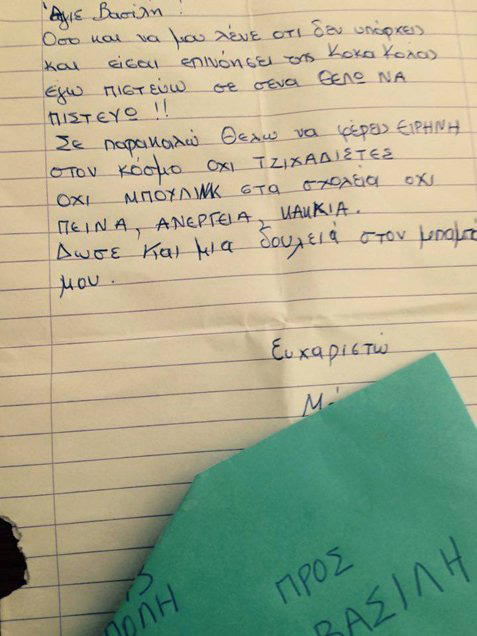 Άγιε Βασίλη!
Όσο και να μου λένε οτι δεν υπάρχεις
και είσαι επινόησει της Κοκα Κολας
εγω πιστεύω σε σενα θελω ΝΑ
ΠΙΣΤΕΥΩ !!
Σε παρακαλώ θελω να φέρεις ΕΙΡΗΝΗ
στον κόσμο οχι ΤΖΙΧΑΔΙΣΤΕΣ
ΟΧΙ ΜΠΟΥΛΙΝΚ στα σχολεία οχι
ΠΕΙΝΑ, ΑΝΕΡΓΕΙΑ, ΚΑΚΚΙΑ.
Δωσε και μια δουλειά στον μπαμπά
μου.
Ευχαριστώ
ΠΡΟΣ
ΒΑΣΙΛΗ
ΠΟΛΗ